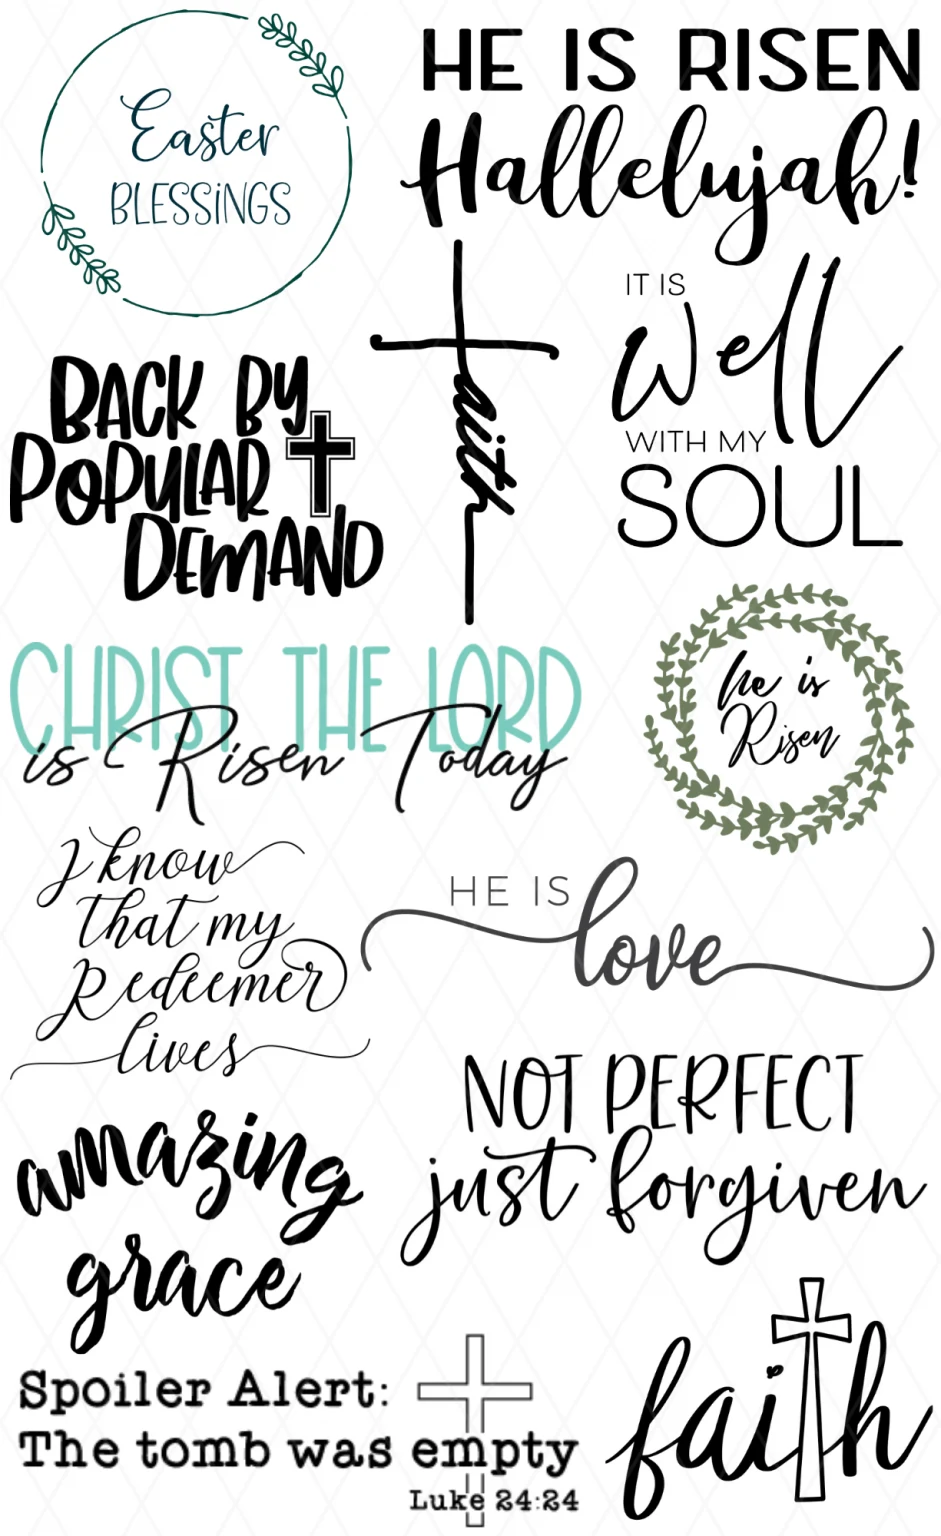 Easter
BLESSiNGS
HE IS RISEN
Hallelujah!
faith
IT IS
well
WITH MY
SOUL
BACK BY
POPULAR
DEMAND
CHRIST THE LORD
is Risen Today
he is
Risen
I know
that my
Redeemer
lives
HE IS
love
NOT PERFECT
just forgiven
amazing
grace
Spoiler Alert:
The tomb was empty
Luke 24:24
faith